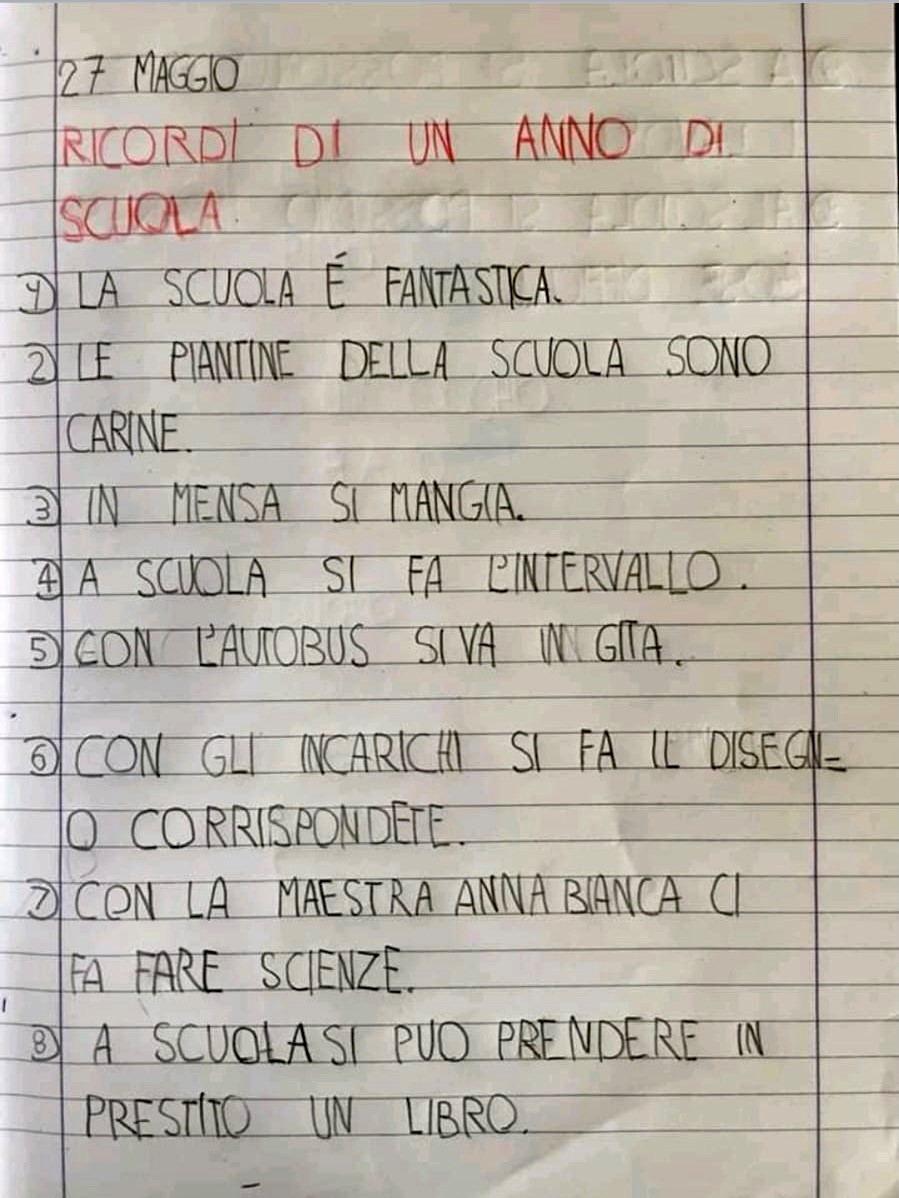 27 MAGGIO
RICORDI DI UN ANNO DI
SCUOLA
1) LA SCUOLA É FANTASTICA.
2) LE PIANTINE DELLA SCUOLA SONO
CARINE.
3) IN MENSA SI MANGIA.
4) A SCUOLA SI FA L'INTERVALLO.
5) CON L'AUTOBUS SI VA IN GITA.
6) CON GLI INCARICHI SI FA IL DISEGN=
O CORRISPONDETE.
7) CON LA MAESTRA ANNA BIANCA CI
FA FARE SCIENZE.
8) A SCUOLA SI PUO PRENDERE IN
PRESTITO UN LIBRO.